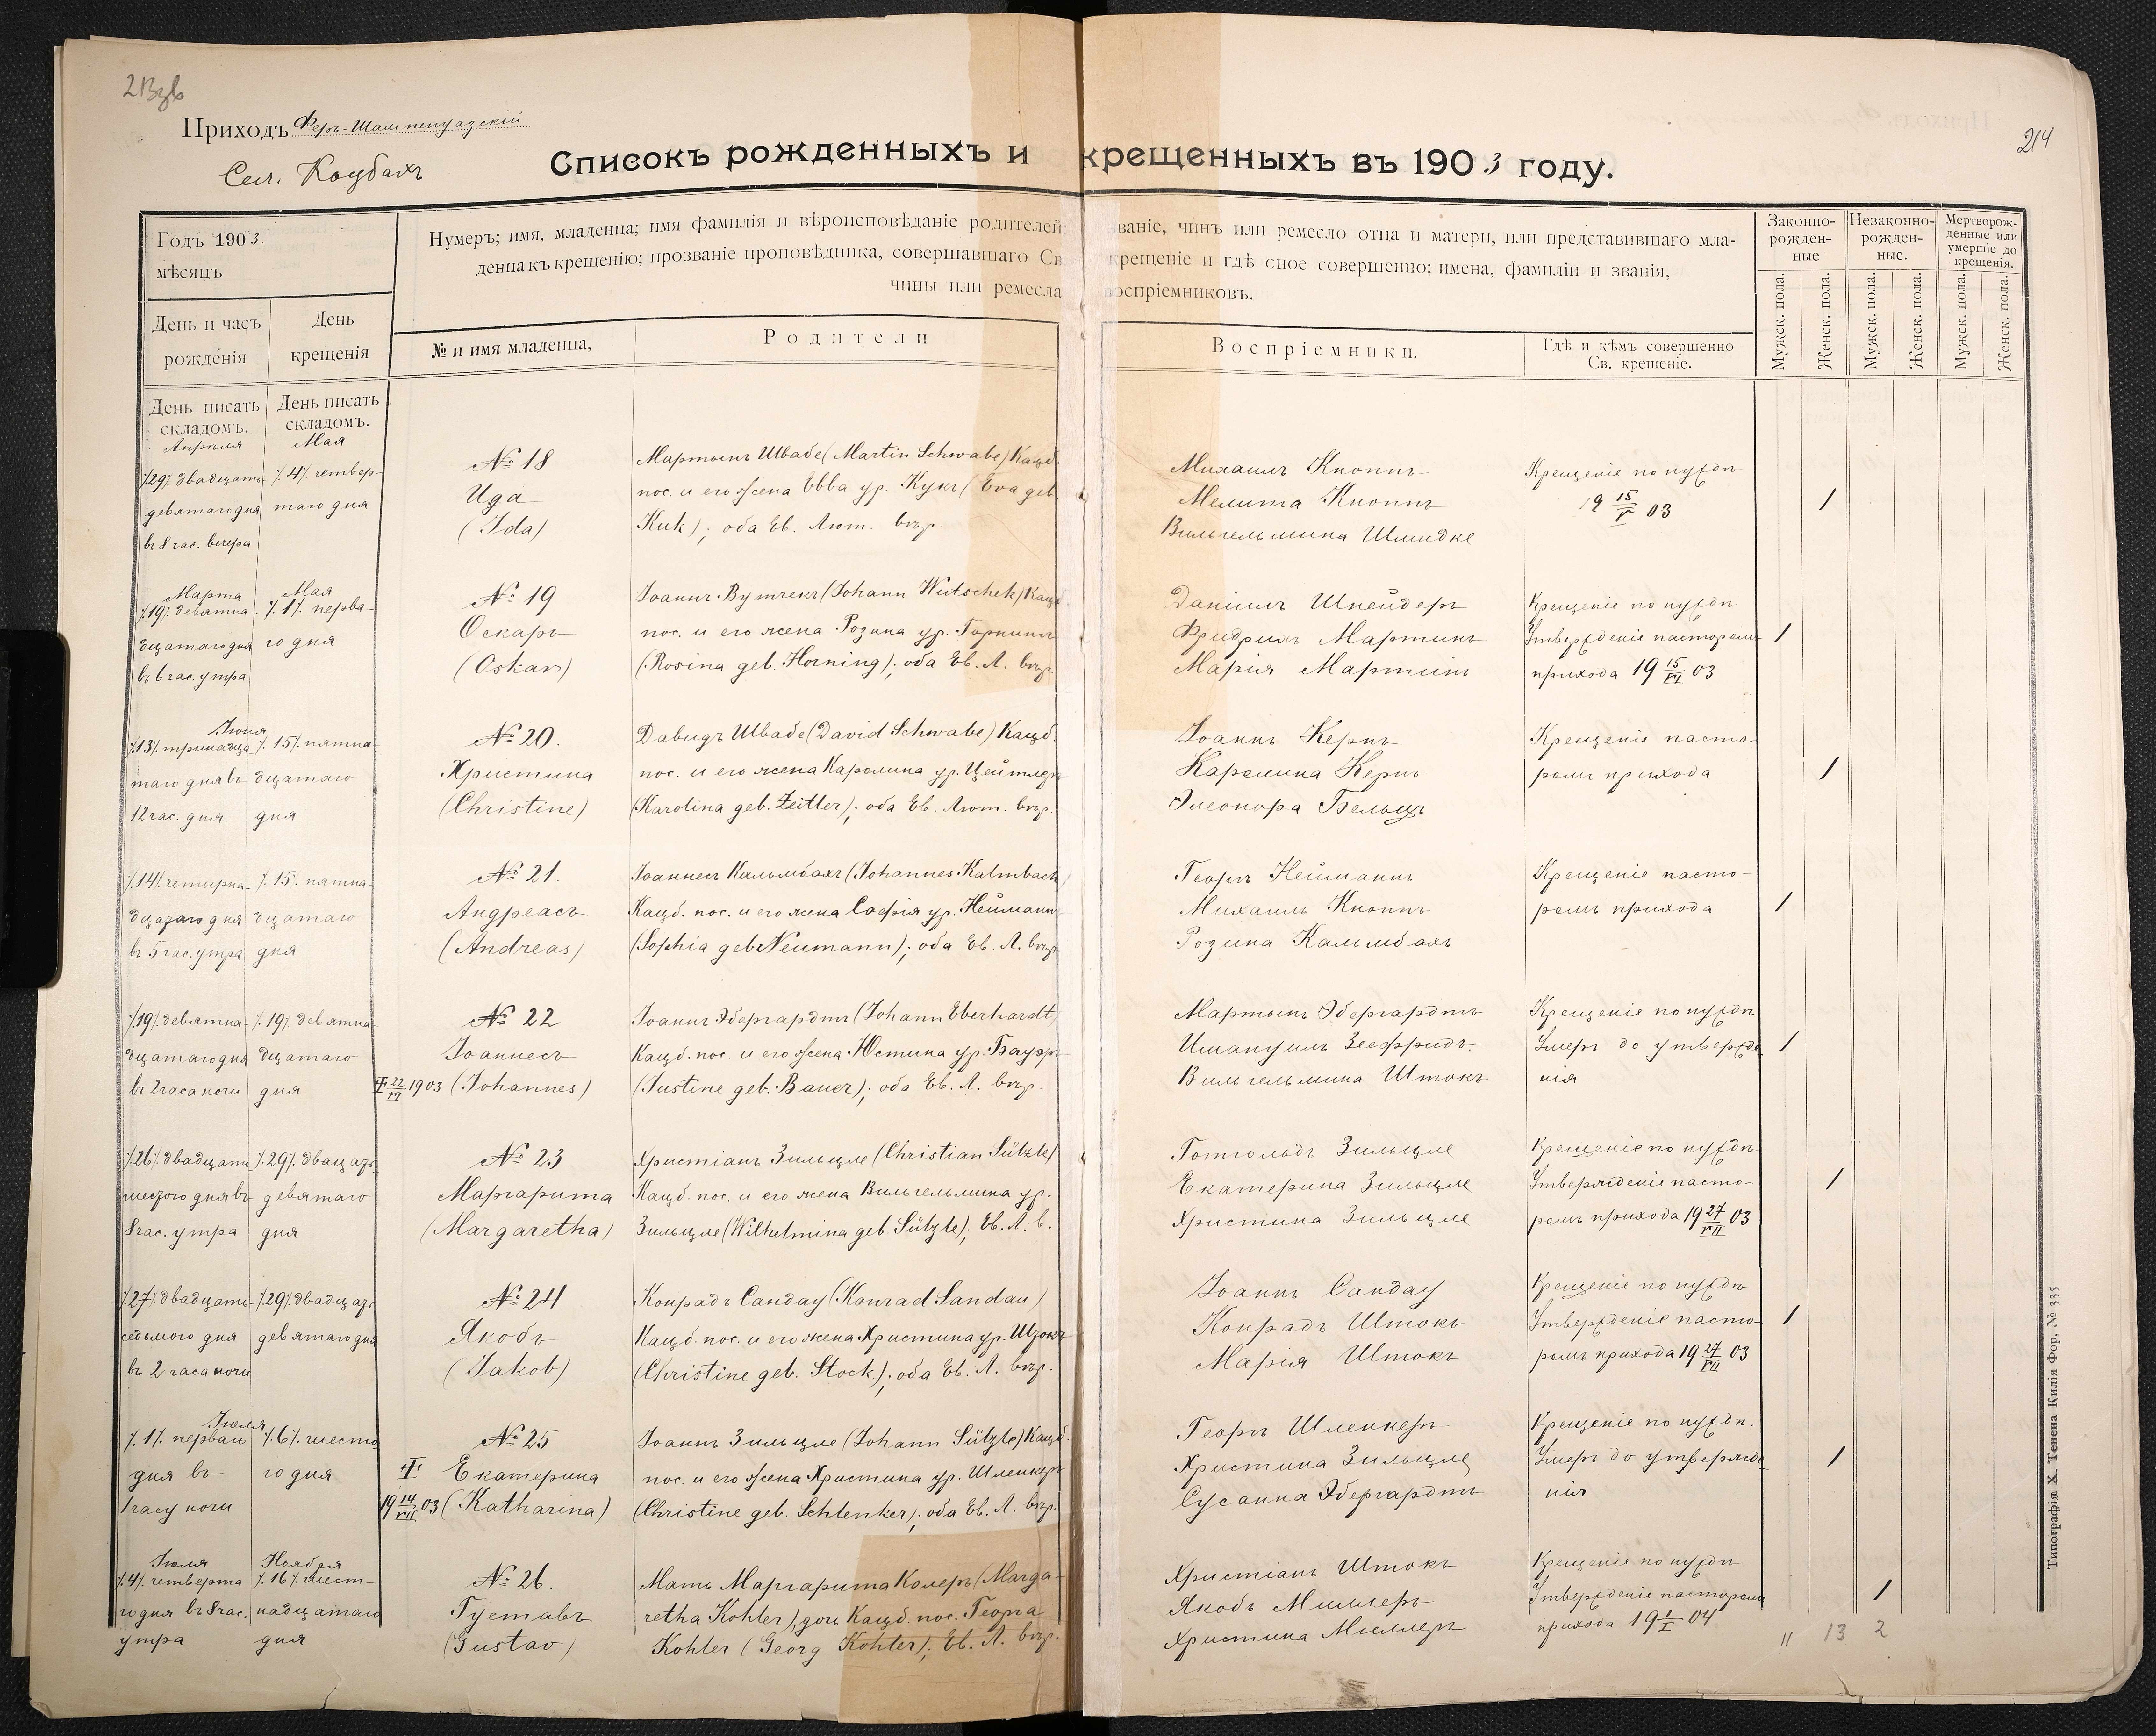 213зв
Приходъ Феръ-Шампенуазскій
Сел. Кацбахъ
214
Списокъ рожденныхъ и крещенныхъ въ 1903 году.
Годъ 1903.
мѣсяцъ
День и часъ рожденія
День крещенія
Нумеръ; имя, младенца; имя фамилія и вѣроисповѣданіе родителей; званіе, чинъ или ремесло отца и матери, или представившаго мла-
денца къ крещенію; прозваніе проповѣдника, совершавшаго Св крещеніе и гдѣ оное совершенно; имена, фамиліи и званія,
чины или ремесла воспріемниковъ.
№ и имя младенца,
Родители
Воспріемники.
Гдѣ и кѣмъ совершенно
Св. крещеніе.
Законно-
рожден-
ные
Незаконно-
рожден-
ные.
Мертворож-
денные или
умершіе до
крещенія.
Мужск. пола.
Женск. пола.
Мужск. пола.
Женск. пола.
Мужск. пола.
Женск. пола.
День писать
складомъ.
День писать
складомъ.
Апрѣля
Мая
/29/. двадцать-
девятаго дня
въ 8 час. вечера
/.4/. четвер-
таго дня
№ 18
Ида
(Ida)
Мартынъ Швабе (Martin Schwabe) Кацб.
пос. и его жена Евва ур. Кукъ (Eva geb
Kuk); оба Ев. Лют. вѣр.
Михаилъ Кноппъ
Мелита Кноппъ
Вильгельмина Шмидке
Крещеніе по нуждѣ
19 15/V 03
/
Марта
Мая
/19/. девятна-
дцатаго дня
въ 6 час. утра
/.1/. перва-
го дня
№ 19
Оскаръ
(Oskar)
Іоаннъ Вутчекъ (Johann Wutschek) Кацб.
пос. и его жена Розина ур. Горнингъ
(Rosina geb. Horning); оба Ев. Л. вѣр.
Даніилъ Шнейдеръ
Фридрихъ Мартинъ
Марія Мартинъ
Крещеніе по нуждѣ
Утвержденіе пасторомъ
прихода 19 15/VI 03
/
Іюня
/13/. тринадца
таго дня въ
12 час. дня
/. 15/. пятна-
дцатаго
дня
№ 20.
Христина
(Christine)
Давидъ Швабе (David Schwabe) Кацб.
пос. и его жена Каролина ур. Цейтлеръ
(Karolina geb. Zeitler); оба Ев. Лют. вѣр.
Іоаннъ Кернъ
Каролина Кернъ
Элеонора Бельцъ
Крещеніе пасто-
ромъ прихода
/
/14/. четырна-
дцатаго дня
въ 5 час. утра
/. 15/. пятна-
дцатаго
дня
№ 21.
Андреасъ
(Andreas)
Іоаннесъ Кальмбахъ (Johannes Kalmbach)
Кацб. пос. и его жена Софія ур. Нейманнъ
(Sophia geb Neumann); оба Ев. Л. вѣр
Георгъ Нейманнъ
Михаилъ Кноппъ
Розина Кальмбахъ
Крещеніе пасто-
ромъ прихода
/
/19/. девятна-
дцатаго дня
въ 2 часа ночи
/. 19/. девятна-
дцатаго
дня
№ 22
Іоаннесъ
22/VI 1903 (Johannes)
Іоаннъ Эбергардтъ (Johann Eberhardt)
Кацб. пос. и его жена Юстина ур. Бауэръ
(Justine geb. Bauer); оба Ев. Л. вѣр.
Мартынъ Эбергардтъ
Имануилъ Зеефридъ.
Вильгельмина Штокъ
Крещеніе по нуждѣ
Умеръ до утвержде-
нія
/
/26/. двадцать
шестого дня въ
8 час. утра
/.29/. двадцать
девятаго
дня
№ 23
Маргарита
(Margaretha)
Христіанъ Зильцле (Christian Sülzle)
Кацб. пос. и его жена Вильгельмина ур.
Зильцле (Wilhelmina geb. Sülzle); Ев. Л. в.
Готгольдъ Зильцле
Екатерина Зильцле
Христина Зильцле
Крещеніе по нуждѣ
Утвержденіе пасто-
ромъ прихода 19 27/VII 03
/
/27/. двадцать-
седьмого дня
въ 2 часа ночи
/29/. двадцать
девятаго дня
№ 24
Якобъ
(Jakob)
Конрадъ Сандау (Konrad Sandau)
Кацб. пос. и его жена Христина ур. Штокъ
(Christine geb. Stock); оба Ев. Л. вѣр.
Іоаннъ Сандау
Конрадъ Штокъ
Марія Штокъ
Крещеніе по нуждѣ
Утвержденіе пасто-
ромъ прихода 19 27/VII 03
/
Іюля
/. 1/. перваго
дня въ
1 часу ночи
/.6/. шесто
го дня
№ 25
Екатерина
19 14/VII 03 (Katharina)
Іоаннъ Зильцле (Johann Sülzle) Кацб.
пос. и его жена Христина ур. Шленкеръ
(Christine geb. Schlenker); оба Ев. Л. вѣр.
Георгъ Шленкеръ
Христина Зильцле
Сусанна Эбергардтъ
Крещеніе по нуждѣ.
Умеръ до утвержде-
нія
/
Іюля
Ноября
/.4/. четверта
го дня въ 8 час.
утра
/. 16/. шест-
надцатаго
дня
№ 26.
Густавъ
(Gustav)
Мать Маргарита Колеръ (Marga-
retha Kohler), дочь Кацб. пос. Георга
Kohler (Georg Kohler); Ев. Л. вѣр.
Христіанъ Штокъ
Якобъ Миллеръ
Христина Миллеръ
Крещеніе по нуждѣ
Утвержденіе пасторомъ
прихода 19 1/I 04
/
11 13 2
Типографія Х. Тенена Килія Фор. № 335